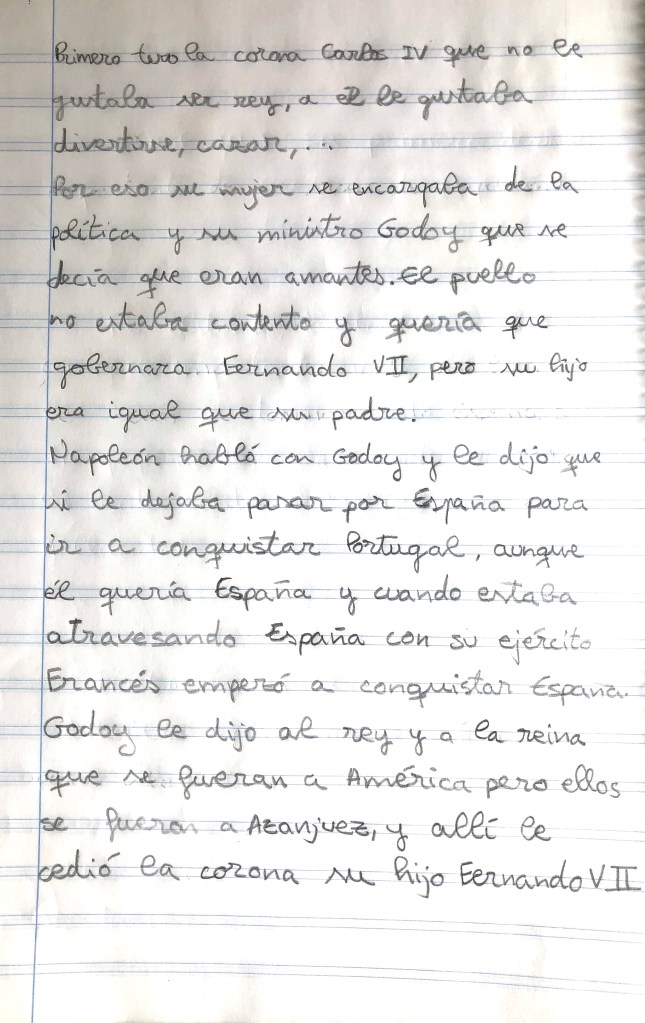 Primero tuvo la corona Carlos IV que no le
gustaba ser rey, a el le gustaba
divertirse, cazar,...
Por eso su mujer se encargaba de la
política y su ministro Godoy que se
decía que eran amantes. El pueblo
no estaba contento y quería que
gobernara Fernando VII, pero su hijo
era igual que su padre.
Napoleón habló con Godoy y le dijo que
si le dejaba pasar por España para
ir a conquistar Portugal, aunque
él quería España y cuando estaba
atravesando España con su ejército
Francés empezó a conquistar España.
Godoy le dijo al rey y a la reina
que se fueran a América pero ellos
se fueron a Azanjuez, y allí le
cedió la corona su hijo Fernando VII